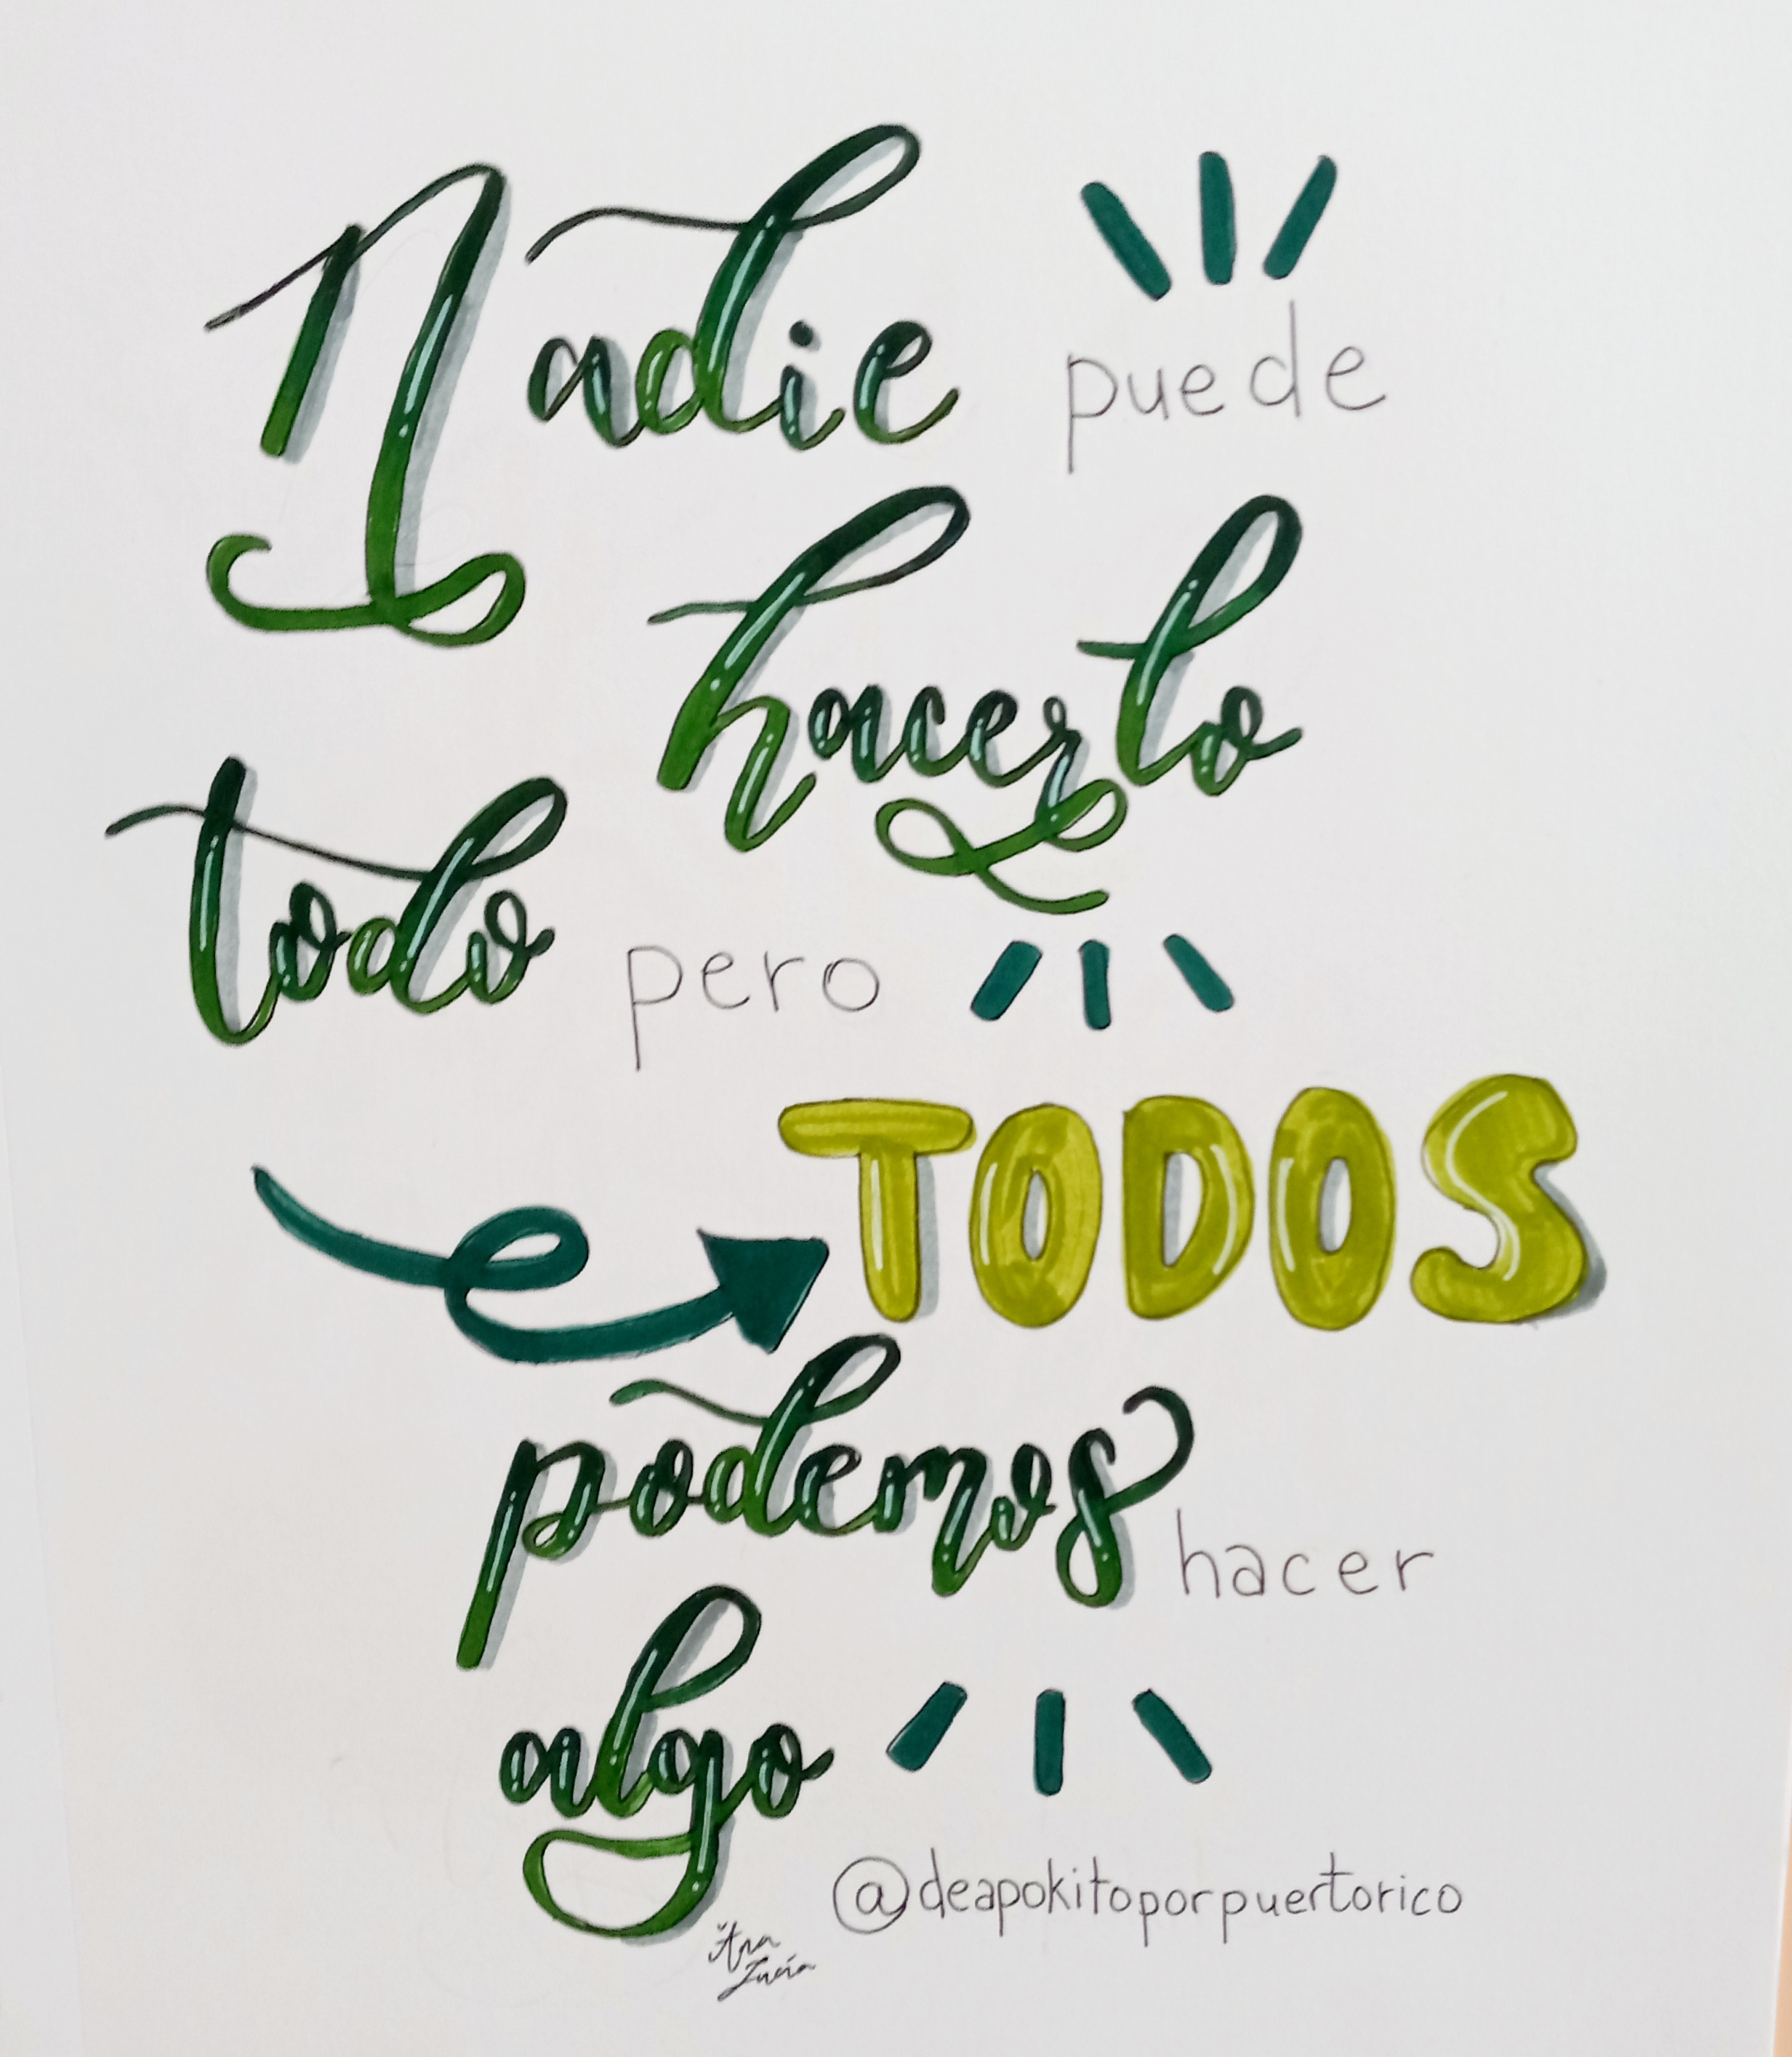 Nadie puede
hacerlo
todo pero
TODOS
podemos hacer
algo
@deapokitoporpuertorico
Ana
Lucía